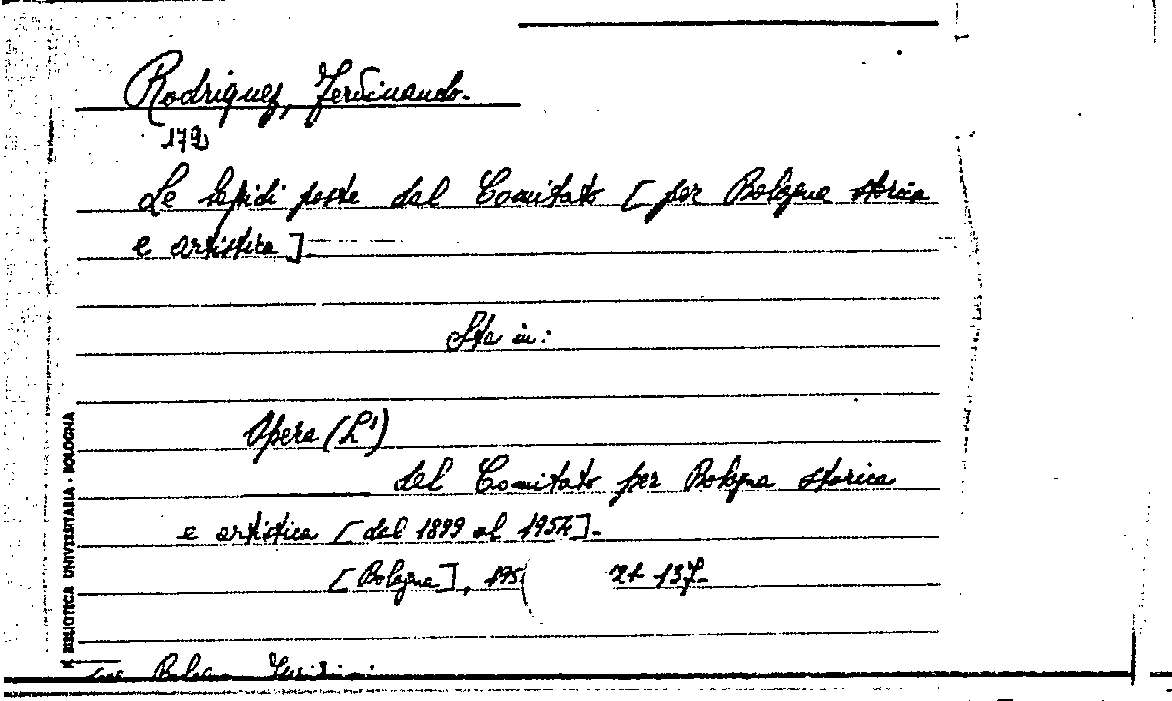 Rodriguez, Ferdinando.
172
Le lapidi poste dal Comitato [per Bologna storica
e artistica]
Sta in:
Opera (L')
del Comitato per Bologna storica
e artistica [dal 1899 al 1954].
[Bologna], 195 pp. 137-
BIBLIOTICA UNIVERSITARIA - BOLOGNA
Bologna